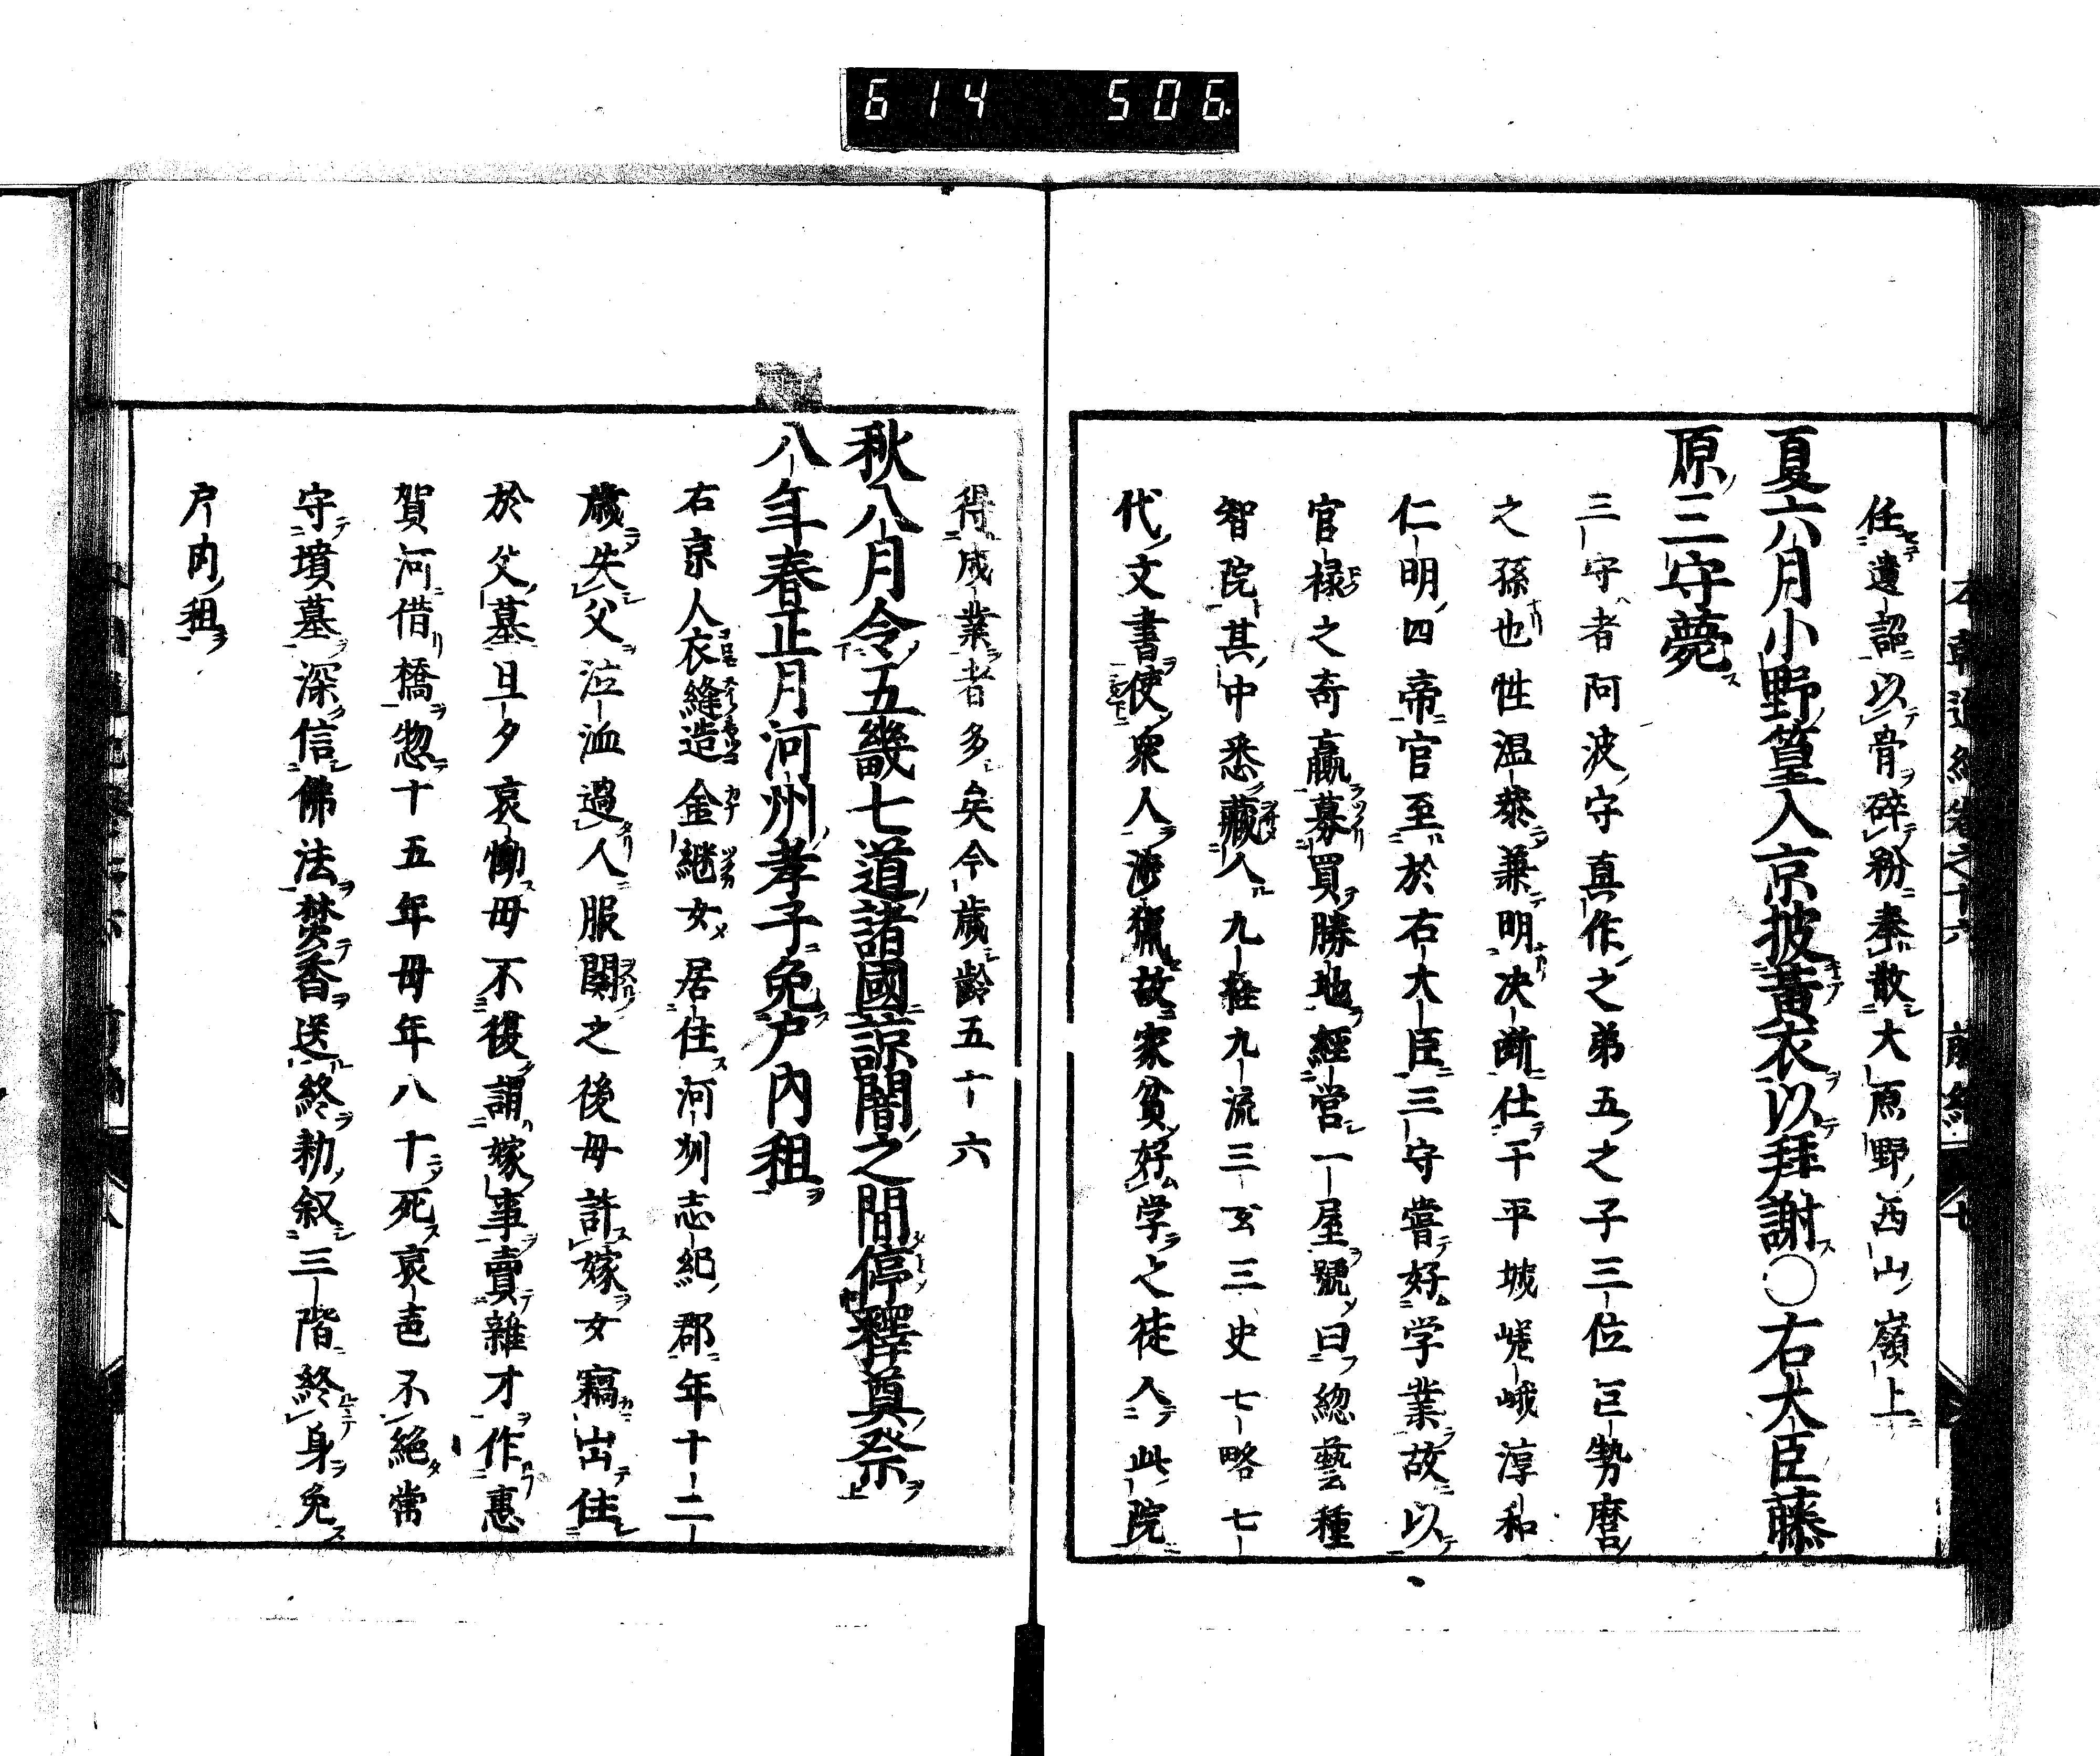 614 506
任遺詔以骨碎粉奉散大原野西山嶺上
夏六月小野篁入京披黃衣以拜謝〇右大臣藤
原三守薨
三守者阿波守真作之弟五之子三位巨勢麿
之孫也性温恭兼明决断仕于平城嵯峨淳和
仁明四帝官至於右大臣三守嘗好学業故以
官禄之奇贏募買勝地經営一屋號曰総藝種
智院其中悉藏入九経九流三玄三史七略七
代文書使衆人渉獵故家貧好学之徒入此院
得成業者多矣今歳齢五十六
秋八月令五畿七道諸國諒闇之間停釋奠祭
八年春正月河州孝子免户内租
右京人衣縫造金継女居住河州志紀郡年十二
歳失父泣血過人服闋之後母許嫁女竊出住
於父墓旦夕哀慟母不復謂嫁事賣雑才作惠
賀河借橋惣十五年母年八十死哀声不絶常
守墳墓深信佛法焚香送終勅叙三階終身免
户内租